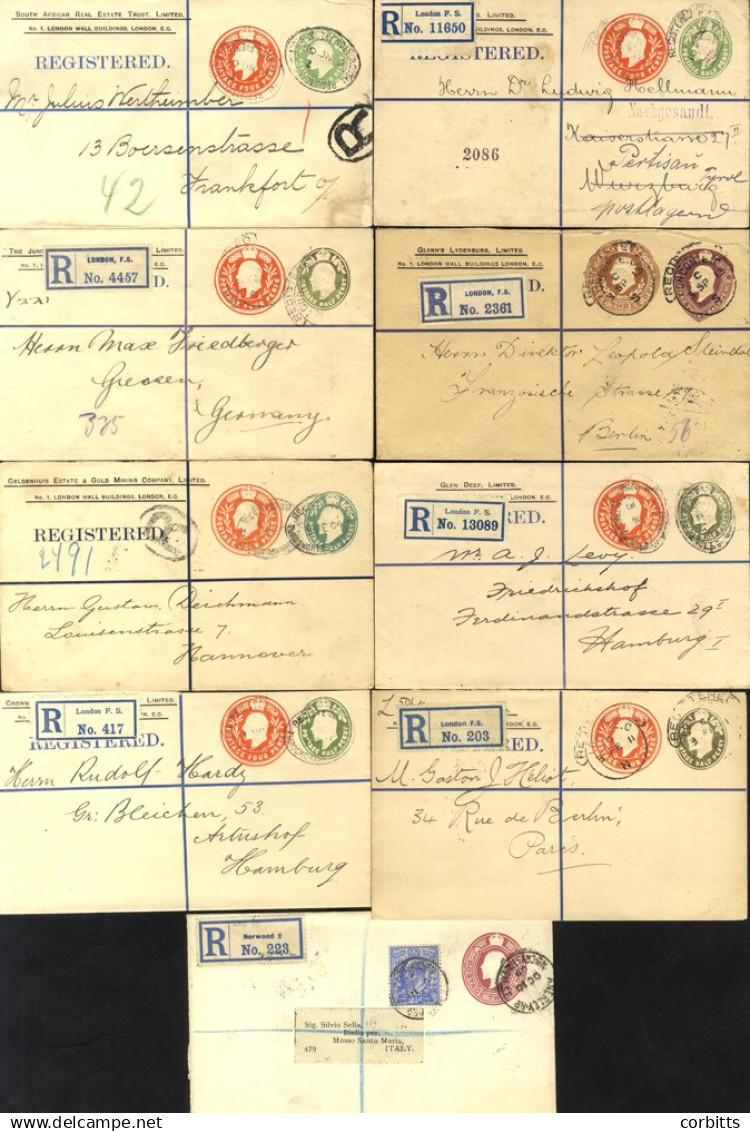 SOUTH AFRICAN REAL ESTATE TRUST, LIMITED.
No. 1, LONDON WALL BUILDINGS, LONDON, E.C.
REGISTERED.
POSTAGE FOUR PENCE
Mr Julius Wertheimber
13 Boersenstrasse
Frankfort o/
42
R
London F. S.
No. 11650
LIMITED.
BUILDINGS, LONDON, E.C.
REGISTERED.
Herrn Dr Ludwig Hellmann
Nachgesandt.
Kaiserstrasse 27 II
2086
Pertisau
Tyrol
Wurzburg
postlagernd
THE
LIMITED.
No. 1,
E.C.
R
LONDON, F.S.
No. 4457
D.
Herrn Max Friedberger
Giessen,
Germany
335
GLYNN'S LYDENBURG, LIMITED.
No. 1, LONDON WALL BUILDINGS LONDON, E.C.
R
LONDON, F.S.
No. 2361
D.
Herrn Direktor Leopold Steinthal
Französische Strasse
Berlin
56
GELDENHUIS ESTATE & GOLD MINING COMPANY, LIMITED
No. 1, LONDON WALL BUILDINGS, LONDON, E.C.
REGISTERED.
2491
Herrn Gustav Deichmann
Louisenstrasse 7
Hannover
GLEN DEEP, LIMITED.
LONDON, E.C.
R
London F.S.
No. 13089
RED.
Mr. A. J. Levy
Friedrichshof
Ferdinandstrasse 29 I
Hamburg I
CROWN
LIMITED.
No.
ON, E.C.
R
London F.S.
No. 417
REGISTERED.
Herrn Rudolf Hardy
Gr: Bleichen, 53
Artushof
Hamburg
R
London F.S.
No. 203
ERED.
M. Gaston J. Héliot,
34 Rue de Berlin,
Paris.
R
Norwood 2
No. 223
Sig. Silvio Sella,
Biella per,
Mosso Santa Maria,
479 ITALY.
© corbitts